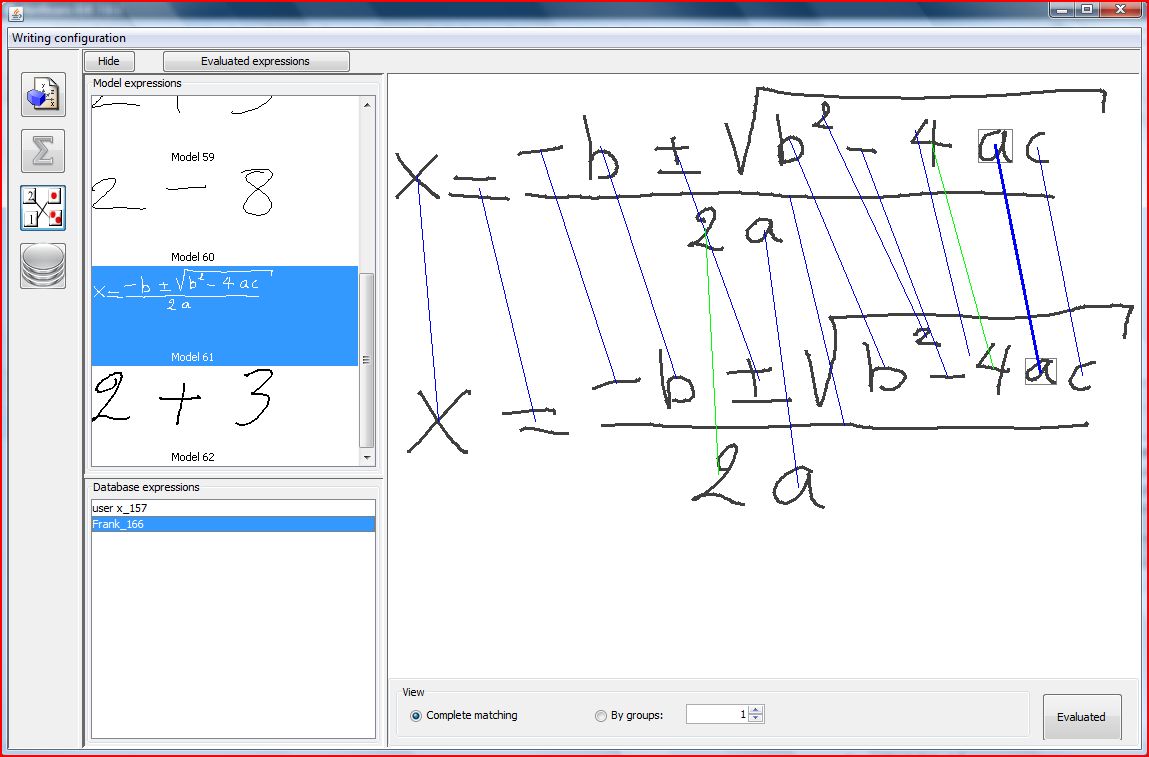 Writing configuration
Hide
Evaluated expressions
Model expressions
2 + 3
Model 59
2 - 8
Model 60
x = (-b ± √(b² - 4ac)) / 2a
Model 61
2 + 3
Model 62
Database expressions
user x_157
Frank_166
x = (-b ± √(b² - 4ac)) / 2a
x = (-b ± √(b² - 4ac)) / 2a
View
Complete matching
By groups:
1
Evaluated